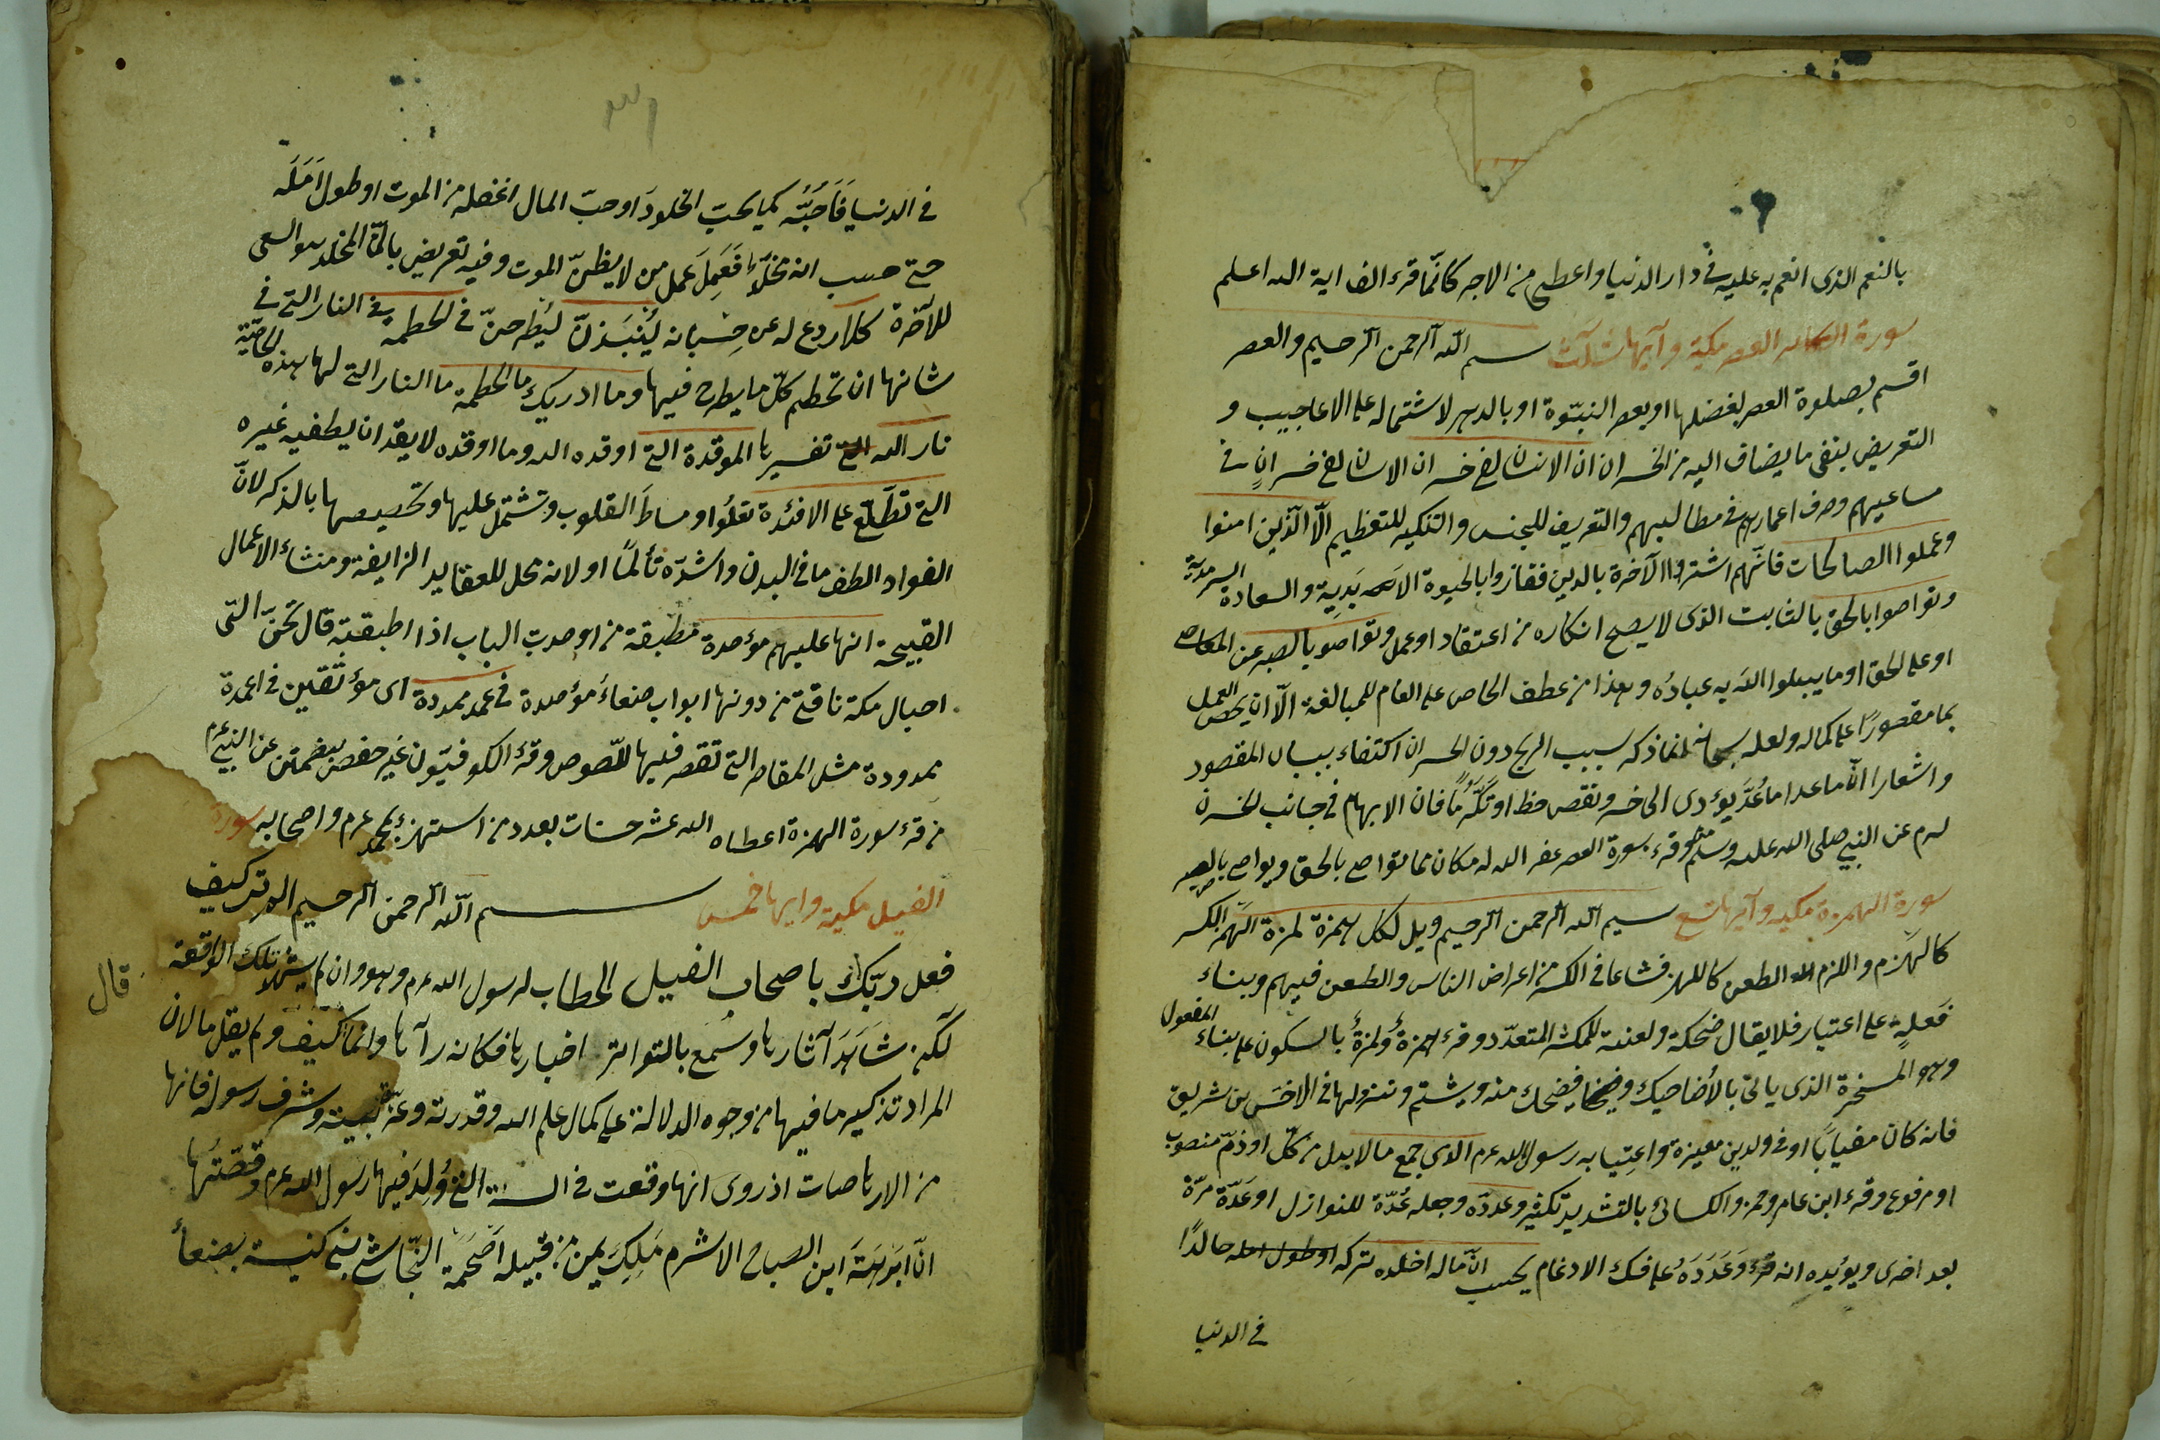 بالنعم الذى انعم به عليه فى دار الدنيا واعطى من الاجر كانّما قرء الف اية الله اعلم
سورة العصر مكية وآيها ثلث بسم الله الرحمن الرحيم والعصر
اقسم بصلوة العصر لفضلها او بعصر النبوّة او بالدهر لاشتماله على الاعاجيب و
التعريض بنفى ما يضاف اليه من الخسران ان الانسان لفى خسر ان الانسان لفى خسران فى
مساعيهم وصرف اعمارهم فى مطالبهم والتعريف للجنس والتنكير للتعظيم الّا الّذين امنوا
وعملوا الصالحات فانّهم اشتروا الآخرة بالدين ففازوا بالحيوة الابدية والسعادة السرمدية
وتواصوا بالحق بالثابت الذى لا يصح انكاره من اعتقاد او عمل وتواصوا بالصبر عن المعاصى
او على الحق او ما يبلوا الله به عباده وهذا من عطف الخاص على العام للمبالغة الّا ان يخص العمل
بما مقصورًا على كماله ولعله سبحانه انما ذكر سبب الربح دون الخسران اكتفاء ببيان المقصود
واشعارا انّ ما عدا ما عُدَّ يؤدى الى خسر ونقص حظ او تكرّمًا فان الابهام فى جانب الخسر
كرم عن النبى صلى الله عليه وسلم من قرء سورة العصر غفر الله له وكان مما تواصى بالحق وتواصى بالصبر
سورة الهمزة مكيه وآيها تسع بسم الله الرحمن الرحيم ويل لكل همزة لمزة الهمز الكسر
كالهزم واللمز الطعن كاللهز فشاعا فى الكسر من اعراض الناس والطعن فيهم وبناء
فعلة على اعتبار فلا يقال ضحكة ولعنة الا للمكثر المتعود وقرء همزة ولمزة بالسكون على بناء المفعول
وهو المسخرة الذى ياتى بالاضاحيك فيضحك منه ويشتم ونزولها فى الاخنس بن شريق
فانه كان مغيابًا او فى وليد بن مغيرة واغتيابه رسول الله عم الذى جمع مالا بدل من كل او ذم منصوب
او مرفوع وقرء ابن عامر وحمزه والكسائى بالتشديد للتكثير وعدده وجعله عُدّة للنوازل او عدّه مرّة
بعد اخرى ويؤيده انه قرء وَعَدَدَهُ على فك الادغام يحسب انّ ماله اخلده تركه خالدًا
فى الدنيا
فى الدنيا فَاَحَبَّه كما يحب الخلود او حبّ المال اغفله من الموت او طول اَمَلَه
حتى حسب انه مخلّد فَعَمِلَ عمل من لا يظنّ الموت وفيه تعريض بان المخلد هو السعى
للآخرة كلا ردع له عن حِسْبانه لَيُنْبَذنّ ليطرحنّ فى الحطمة فى النار التى فى
شانها ان تحطم كلّ ما يطرح فيها وما ادريك ما الحطمة ما النار التى لها هذه الخاصّيّة
نار الله تفسير لها الموقدة التى اوقده الله وما اوقده لا يقدر ان يطفيه غيره
التى تطّلع على الافئدة تعلُوا اوساط القلوب وتشتمل عليها وتخصيصها بالذكر لانّ
الفواد الطف ما فى البدن واشدّه تألّمًا او لانه محل للعقايد الزايفة ومنشاء الاعمال
القبيحة انها عليهم مؤصدة مطبقة من اوصدت الباب اذا اطبقته قال تحنّ الى
اجبال مكة ناقتى من دونها ابواب صنعاء مؤصدة فى عمد ممددة اى مؤثقين فى اعمدة
ممدودة مثل المقاطر التى تقطر فيها اللصوص وقرء الكوفيّون غير حفص بضمتين عن النبى عم
من قرء سورة الهمزة اعطاه الله عشر حسنات بعدد من استهزء بمحمد عم واصحابه سورة
الفيل مكية وايها خمس بسم الله الرحمن الرحيم الم تر كيف
فعل ربّك باصحاب الفيل الخطاب لرسول الله عم وهو وان لم يشهد تلك الواقعة
لكن شَاهَدَ آثارها وسمع بالتواتر اخبارها فكانه رآها وانما قال كيف ولم يقل ما لان
المراد تذكير ما فيها من وجوه الدلالة على كمال علم الله وقدرته وعزّة بيته وشرف رسوله فانها
من الارهاصات اذ روى انها وقعت فى السنة التى وُلِدَ فيها رسول الله عم وقصّتُها
انّ ابرهة ابن الصباح الاشرم مَلِكَ يمن من قبيله اَصْحَمَة النّجاشى بنى كنيسة بصنعأ
قال